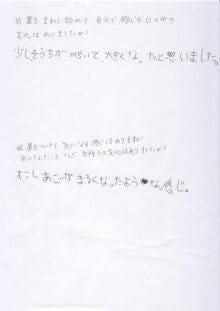 装置をまわし始めて、自分で感じる口の中の
変化はありましたか?
少しそうちがういて大きくなったと思いました。
装置をつけて、気になる感じはありますか?
気になったことなど、気持ちの変化はありましたか?
すこしあごがまるくなったような感じ。